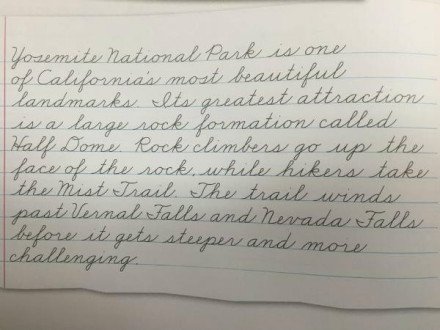 Yosemite National Park is one
of California's most beautiful
landmarks. Its greatest attraction
is a large rock formation called
Half Dome. Rock climbers go up the
face of the rock, while hikers take
the Mist Trail. The trail winds
past Vernal Falls and Nevada Falls
before it gets steeper and more
challenging.